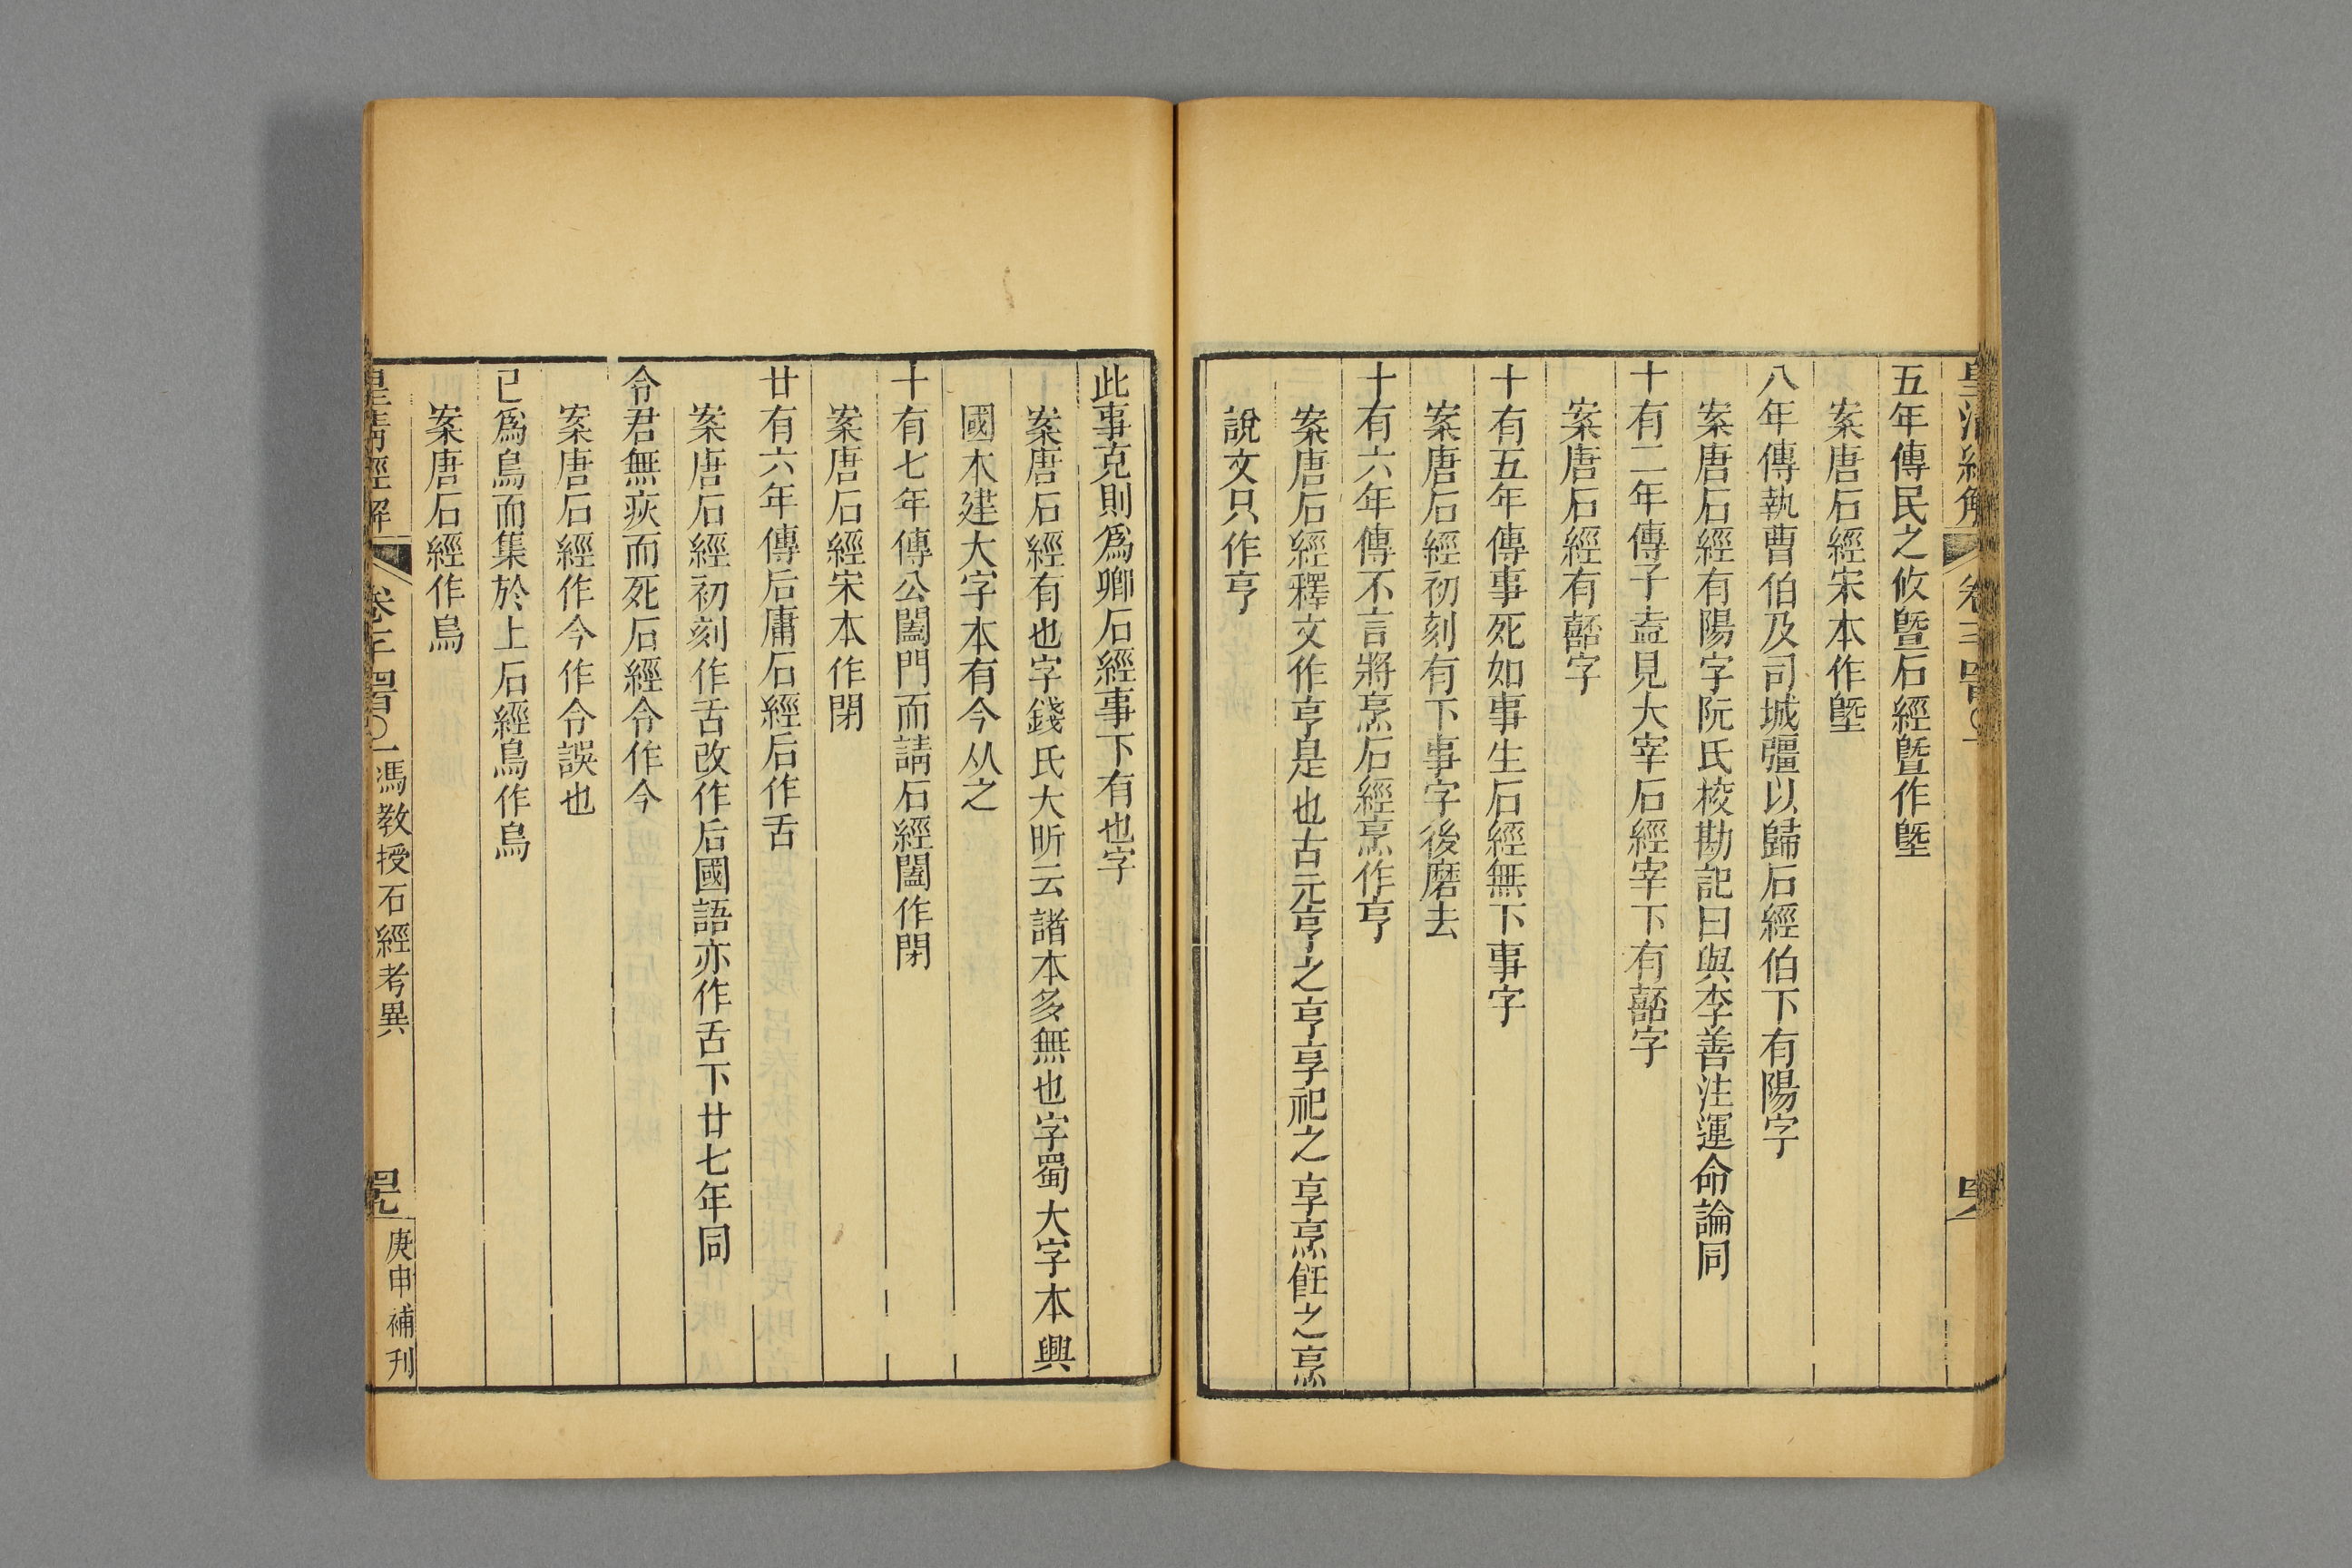 五年傳民之攸曁石經曁作墍
案唐石經宋本作墍
八年傳執曹伯及司城彊以歸石經伯下有陽字
案唐石經有陽字阮氏校勘記曰與李善注運命論同
十有二年傳子盍見大宰石經宰下有嚭字
案唐石經有嚭字
十有五年傳事死如事生石經無下事字
案唐石經初刻有下事字後磨去
十有六年傳不言將烹石經烹作亨
案唐石經釋文作亨是也古元亨之亨享祀之享烹飪之烹
說文只作亨
此事克則為卿石經事下有也字
案唐石經有也字錢氏大昕云諸本多無也字蜀大字本興
國本建大字本有今从之
十有七年傳公闔門而請石經闔作閉
案唐石經宋本作閉
廿有六年傳后庸石經后作舌
案唐石經初刻作舌改作后國語亦作舌下廿七年同
令君無疢而死石經令作今
案唐石經作今作令誤也
已爲鳥而集於上石經鳥作烏
案唐石經作烏
皇清經解
卷
一馮教授石經考異
庚申補刊